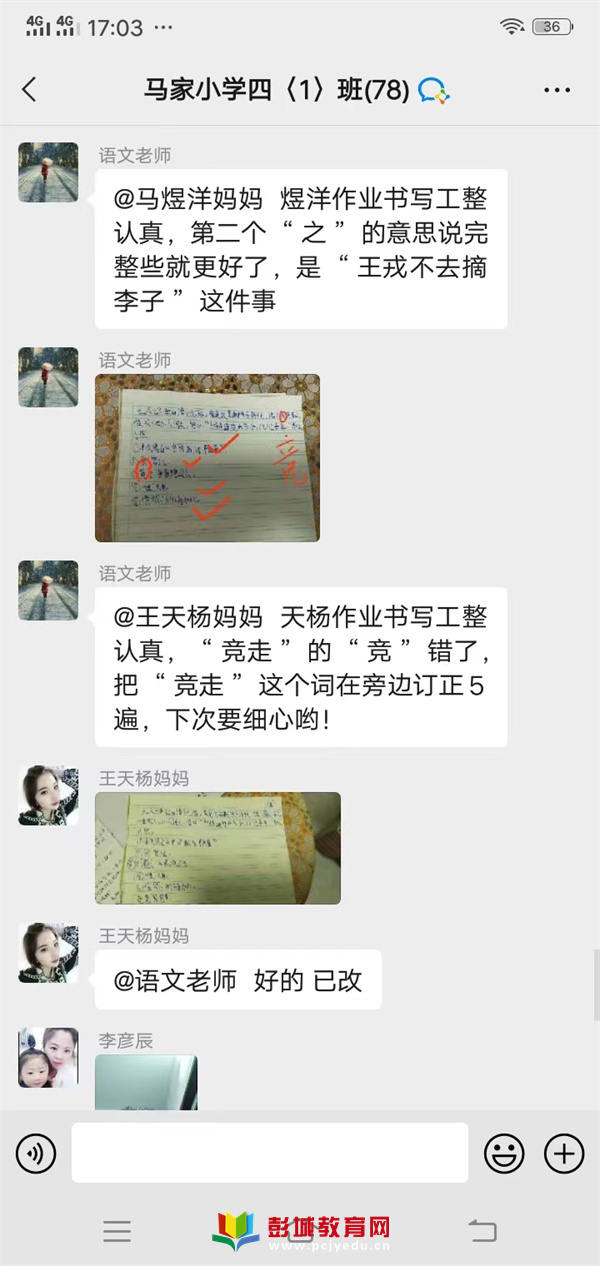 4G 4G 17:03 ··· 36
马家小学四〈1〉班(78)
语文老师
@马煜洋妈妈 煜洋作业书写工整
认真，第二个“之”的意思说完
整些就更好了，是“王戎不去摘
李子”这件事
语文老师
竞
语文老师
@王天杨妈妈 天杨作业书写工整
认真，“竞走”的“竞”错了，
把“竞走”这个词在旁边订正5
遍，下次要细心哟！
王天杨妈妈
王天杨妈妈
@语文老师 好的 已改
李彦辰
彭城教育网
www.pcjyedu.cn